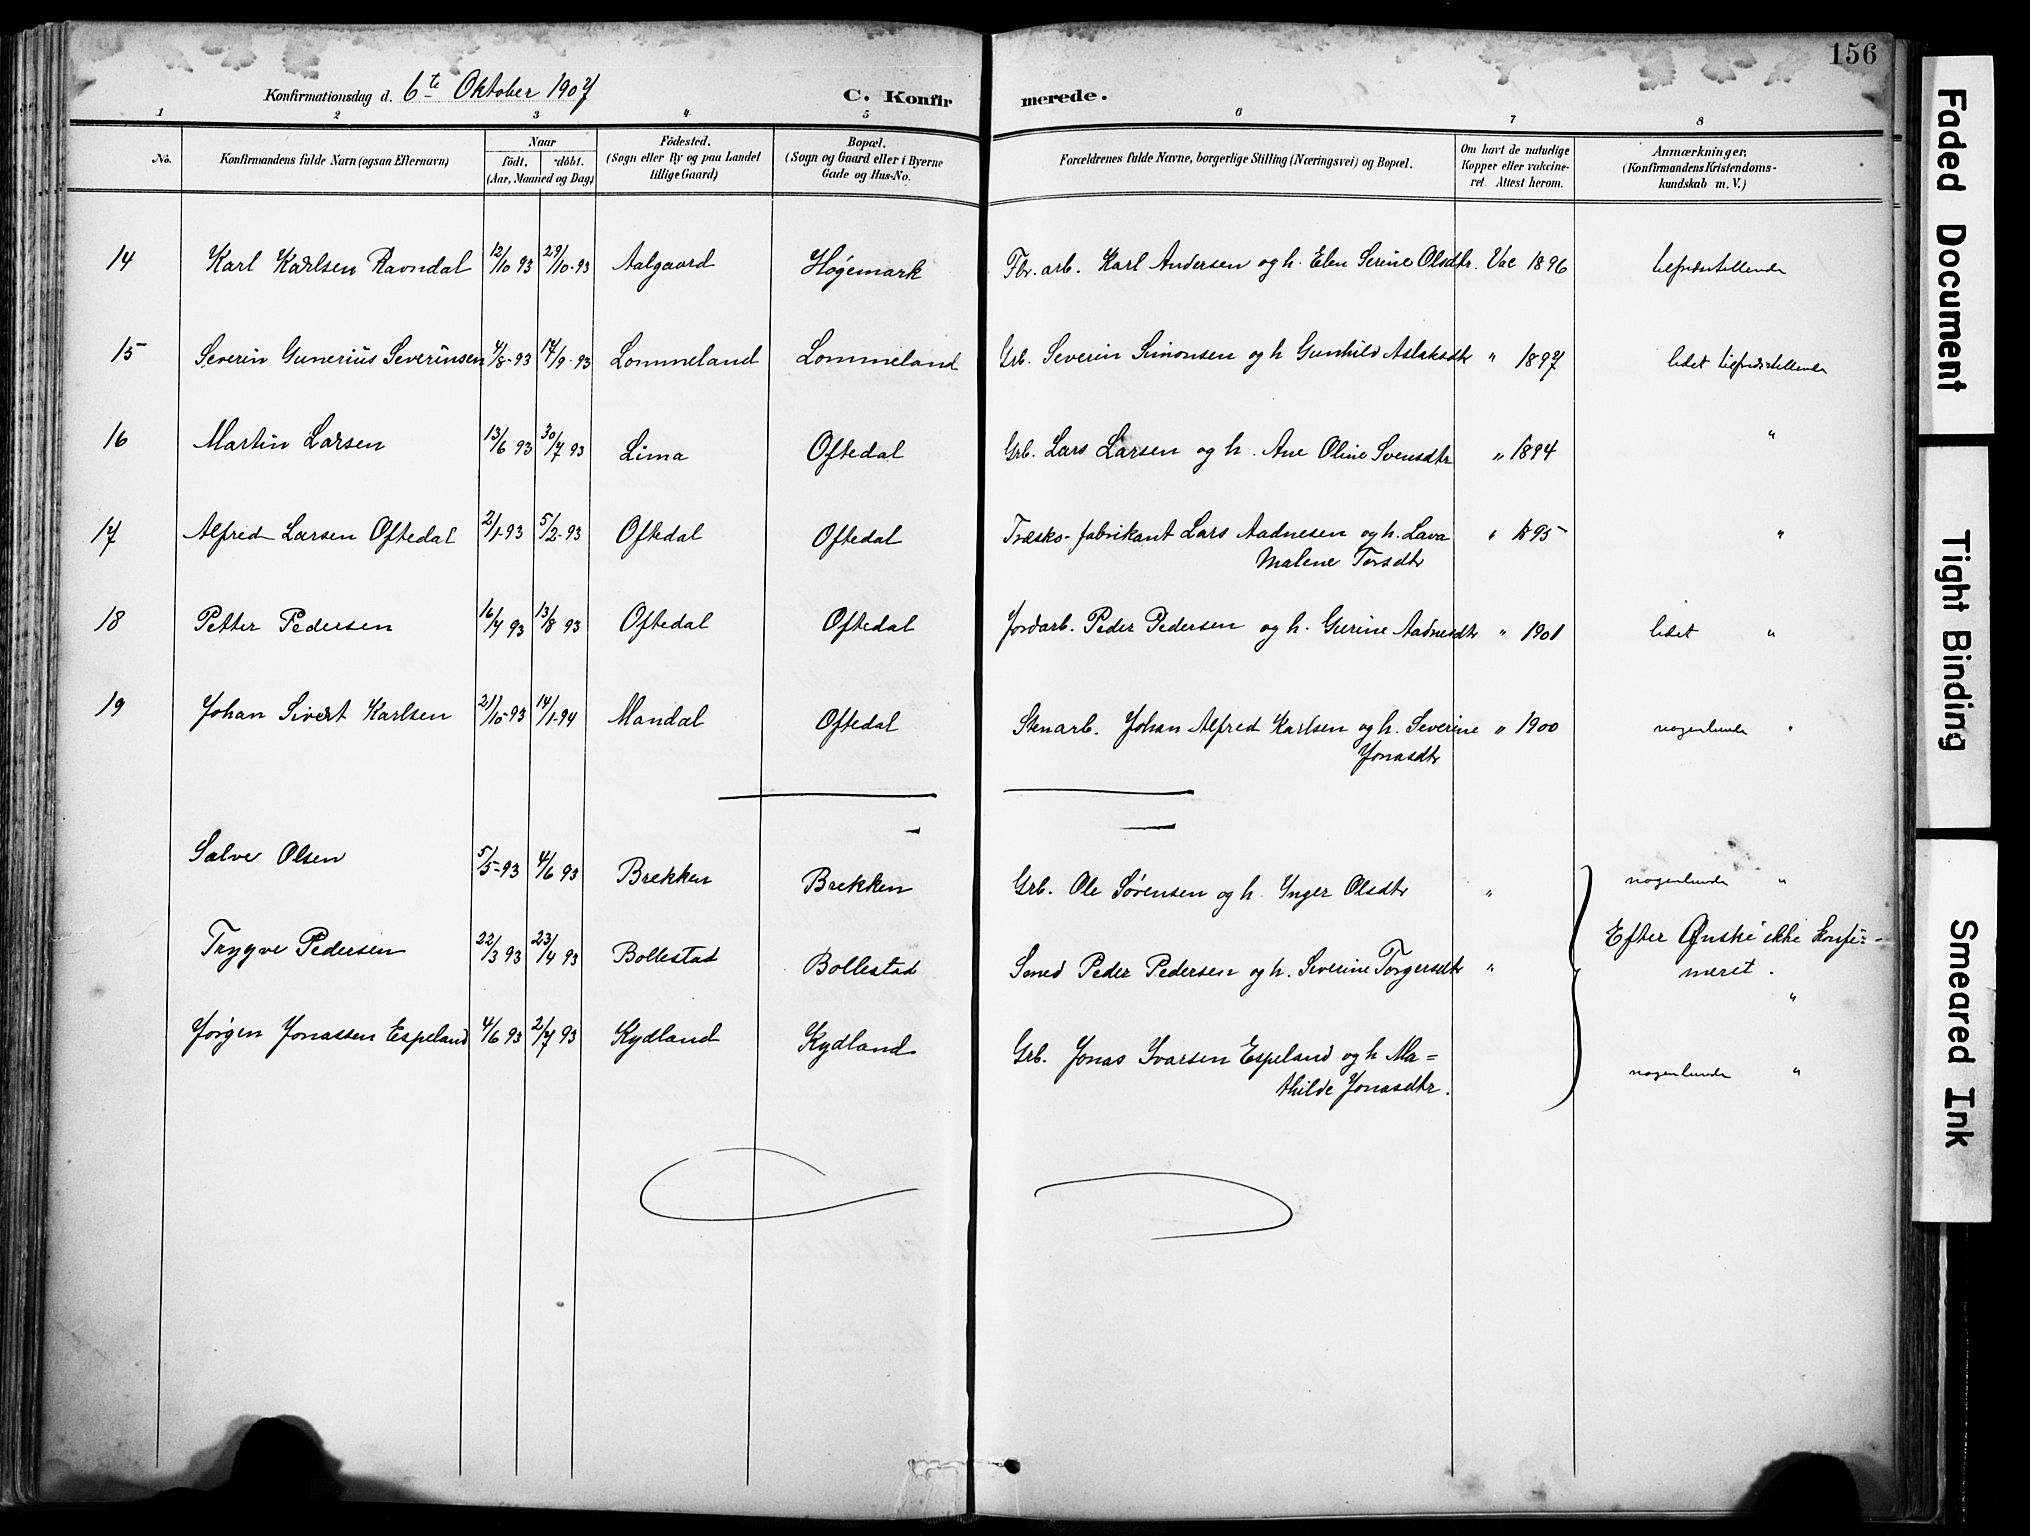 156
Konfirmationsdag d. 6te Oktober 1907 C. Konfir merede.
1 2 3 4 5 6 7 8
No. Konfirmandens fulde Navn (ogsaa Efternavn) Naar födt. döbt. (Aar, Maaned og Dag) Födested. (Sogn eller By og paa Landet tillige Gaard) Bopæl. (Sogn og Gaard eller i Byerne Gade og Hus-No. Forældrenes fulde Navne, borgerlige Stilling (Næringsvei) og Bopæl. Om havt de naturlige Kopper eller vakcineret. Attest herom. Anmærkninger, (Konfirmandens Kristendomskundskab m. V.)
14 Karl Karlsen Ravndal 12/10 93 29/10-93 Aalgaard Høgemark Fbr. arb. Karl Andersen og h. Elen Serine Olsdtr. Vac 1896 tilfredsstillende
15 Severin Gunerius Severinsen 4/8-93 17/9-93 Lommeland Lommeland Grb. Severin Simonsen og h Gunhild Aslaksdtr " 1897 lidet tilfredsstillende
16 Martin Larsen 13/6 93 30/7 93 Lima Oftedal Grb. Lars Larsen og h. Ane Oline Svensdtr " 1894 "
17 Alfred Larsen Oftedal 2/1-93 5/2-93 Oftedal Oftedal Træsko-fabrikant Lars Aadnesen og h. Lava " 1895 "
Malene Torsdtr
18 Petter Pedersen 16/7 93 13/8 93 Oftedal Oftedal Jordarb. Peder Pedersen og h. Gurine Aadnesdtr " 1901 lidet "
19 Johan Sivert Karlsen 21/10-93 14/1-94 Mandal Oftedal Stenarb. Johan Alfred Karlsen og h. Severine " 1900 nogenlunde "
Jonasdtr
Salve Olsen 5/5-93 4/6 93 Brekken Brekken Grb. Ole Sørensen og h. Ynger Olsdtr " nogenlunde "
Trygve Pedersen 22/3 93 23/4 93 Bollestad Bollestad Smed Peder Pedersen og h. Severine Torgersdtr " Efter Ønske ikke konfir-
meret.
"
Jørgen Jonassen Espeland 4/6 93 2/7 93 Kydland Kydland Grb. Jonas Ivarsen Espeland og h Ma=
thilde Jonasdtr. nogenlunde "
Faded Document
Tight Binding
Smeared Ink